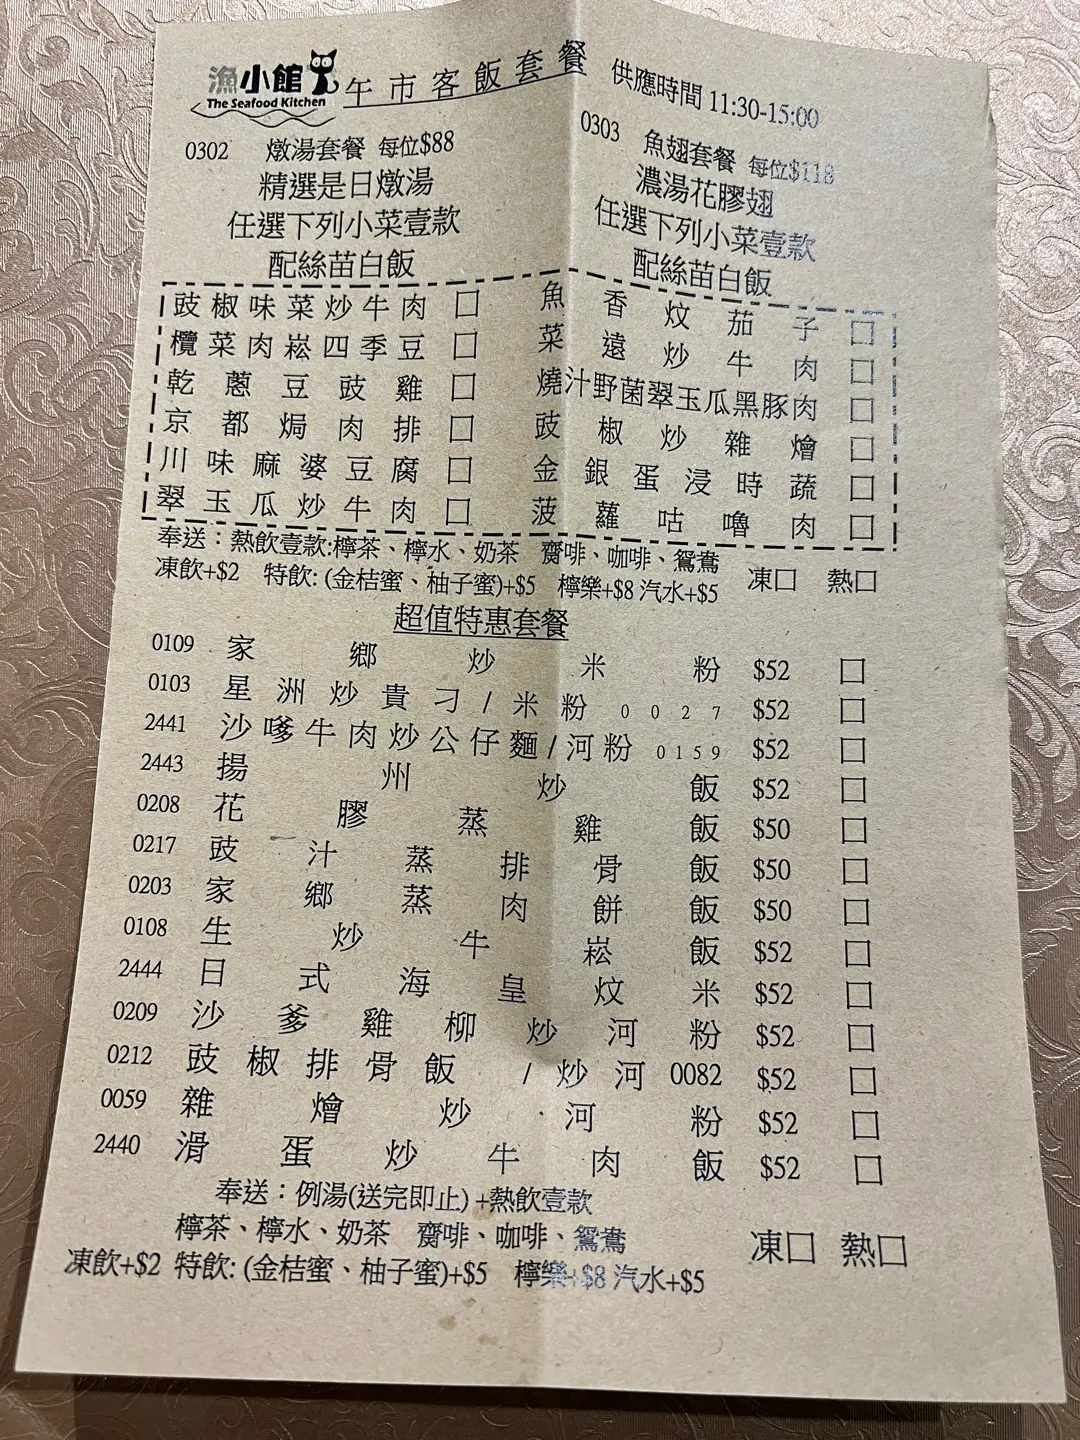 漁小館 午市客飯套餐 供應時間 11:30-15:00
The Seafood Kitchen
0302 燉湯套餐 每位$88
精選是日燉湯
任選下列小菜壹款
配絲苗白飯
0303 魚翅套餐 每位$118
濃湯花膠翅
任選下列小菜壹款
配絲苗白飯
豉椒味菜炒牛肉 □ 魚香炆茄子 □
欖菜肉崧四季豆 □ 菜遠炒牛肉 □
乾蔥豆豉雞 □ 燒汁野菌翠玉瓜黑豚肉 □
京都焗肉排 □ 豉椒炒雜燴 □
川味麻婆豆腐 □ 金銀蛋浸時蔬 □
翠玉瓜炒牛肉 □ 菠蘿咕嚕肉 □
奉送：熱飲壹款:檸茶、檸水、奶茶 齋啡、咖啡、鴛鴦
凍飲+$2 特飲: (金桔蜜、柚子蜜)+$5 檸樂+$8 汽水+$5 凍□ 熱□
超值特惠套餐
0109 家鄉炒米粉 $52 □
0103 星洲炒貴刁/米粉 0027 $52 □
2441 沙嗲牛肉炒公仔麵/河粉 0159 $52 □
2443 揚州炒飯 $52 □
0208 花膠蒸雞飯 $50 □
0217 豉汁蒸排骨飯 $50 □
0203 家鄉蒸肉餅飯 $50 □
0108 生炒牛崧飯 $52 □
2444 日式海皇炆米 $52 □
0209 沙爹雞柳炒河粉 $52 □
0212 豉椒排骨飯/炒河 0082 $52 □
0059 雜燴炒河粉 $52 □
2440 滑蛋炒牛肉飯 $52 □
奉送：例湯(送完即止)+熱飲壹款
檸茶、檸水、奶茶 齋啡、咖啡、鴛鴦 凍□ 熱□
凍飲+$2 特飲: (金桔蜜、柚子蜜)+$5 檸樂+$8 汽水+$5